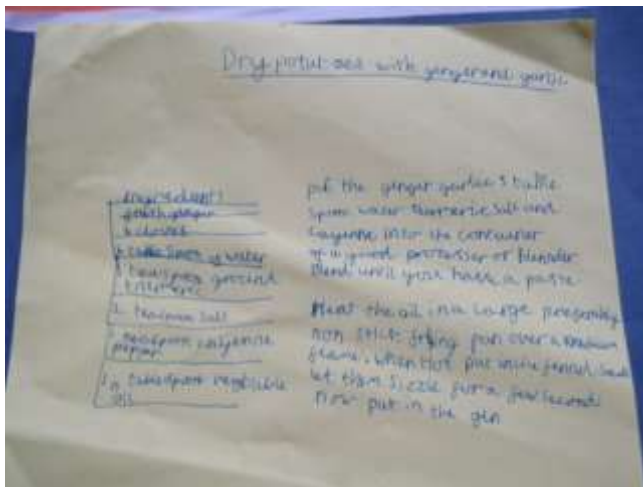 Dry potatoes with ginger and garlic
ingredients
ginger
cloves
table spoon of water
teaspoon ground
turmeric
1 teaspoon salt
teaspoon cayenne
pepper
tablespoon vegetable
oil
put the ginger garlic 3 table
spoon water turmeric salt and
cayenne into the container
of a food processer or blender
blend until you have a paste
Heat the oil in a large preferably
non stick frying pan over a medium
flame, when hot put in the fennel seeds
let them sizzle for a few seconds
now put in the gin